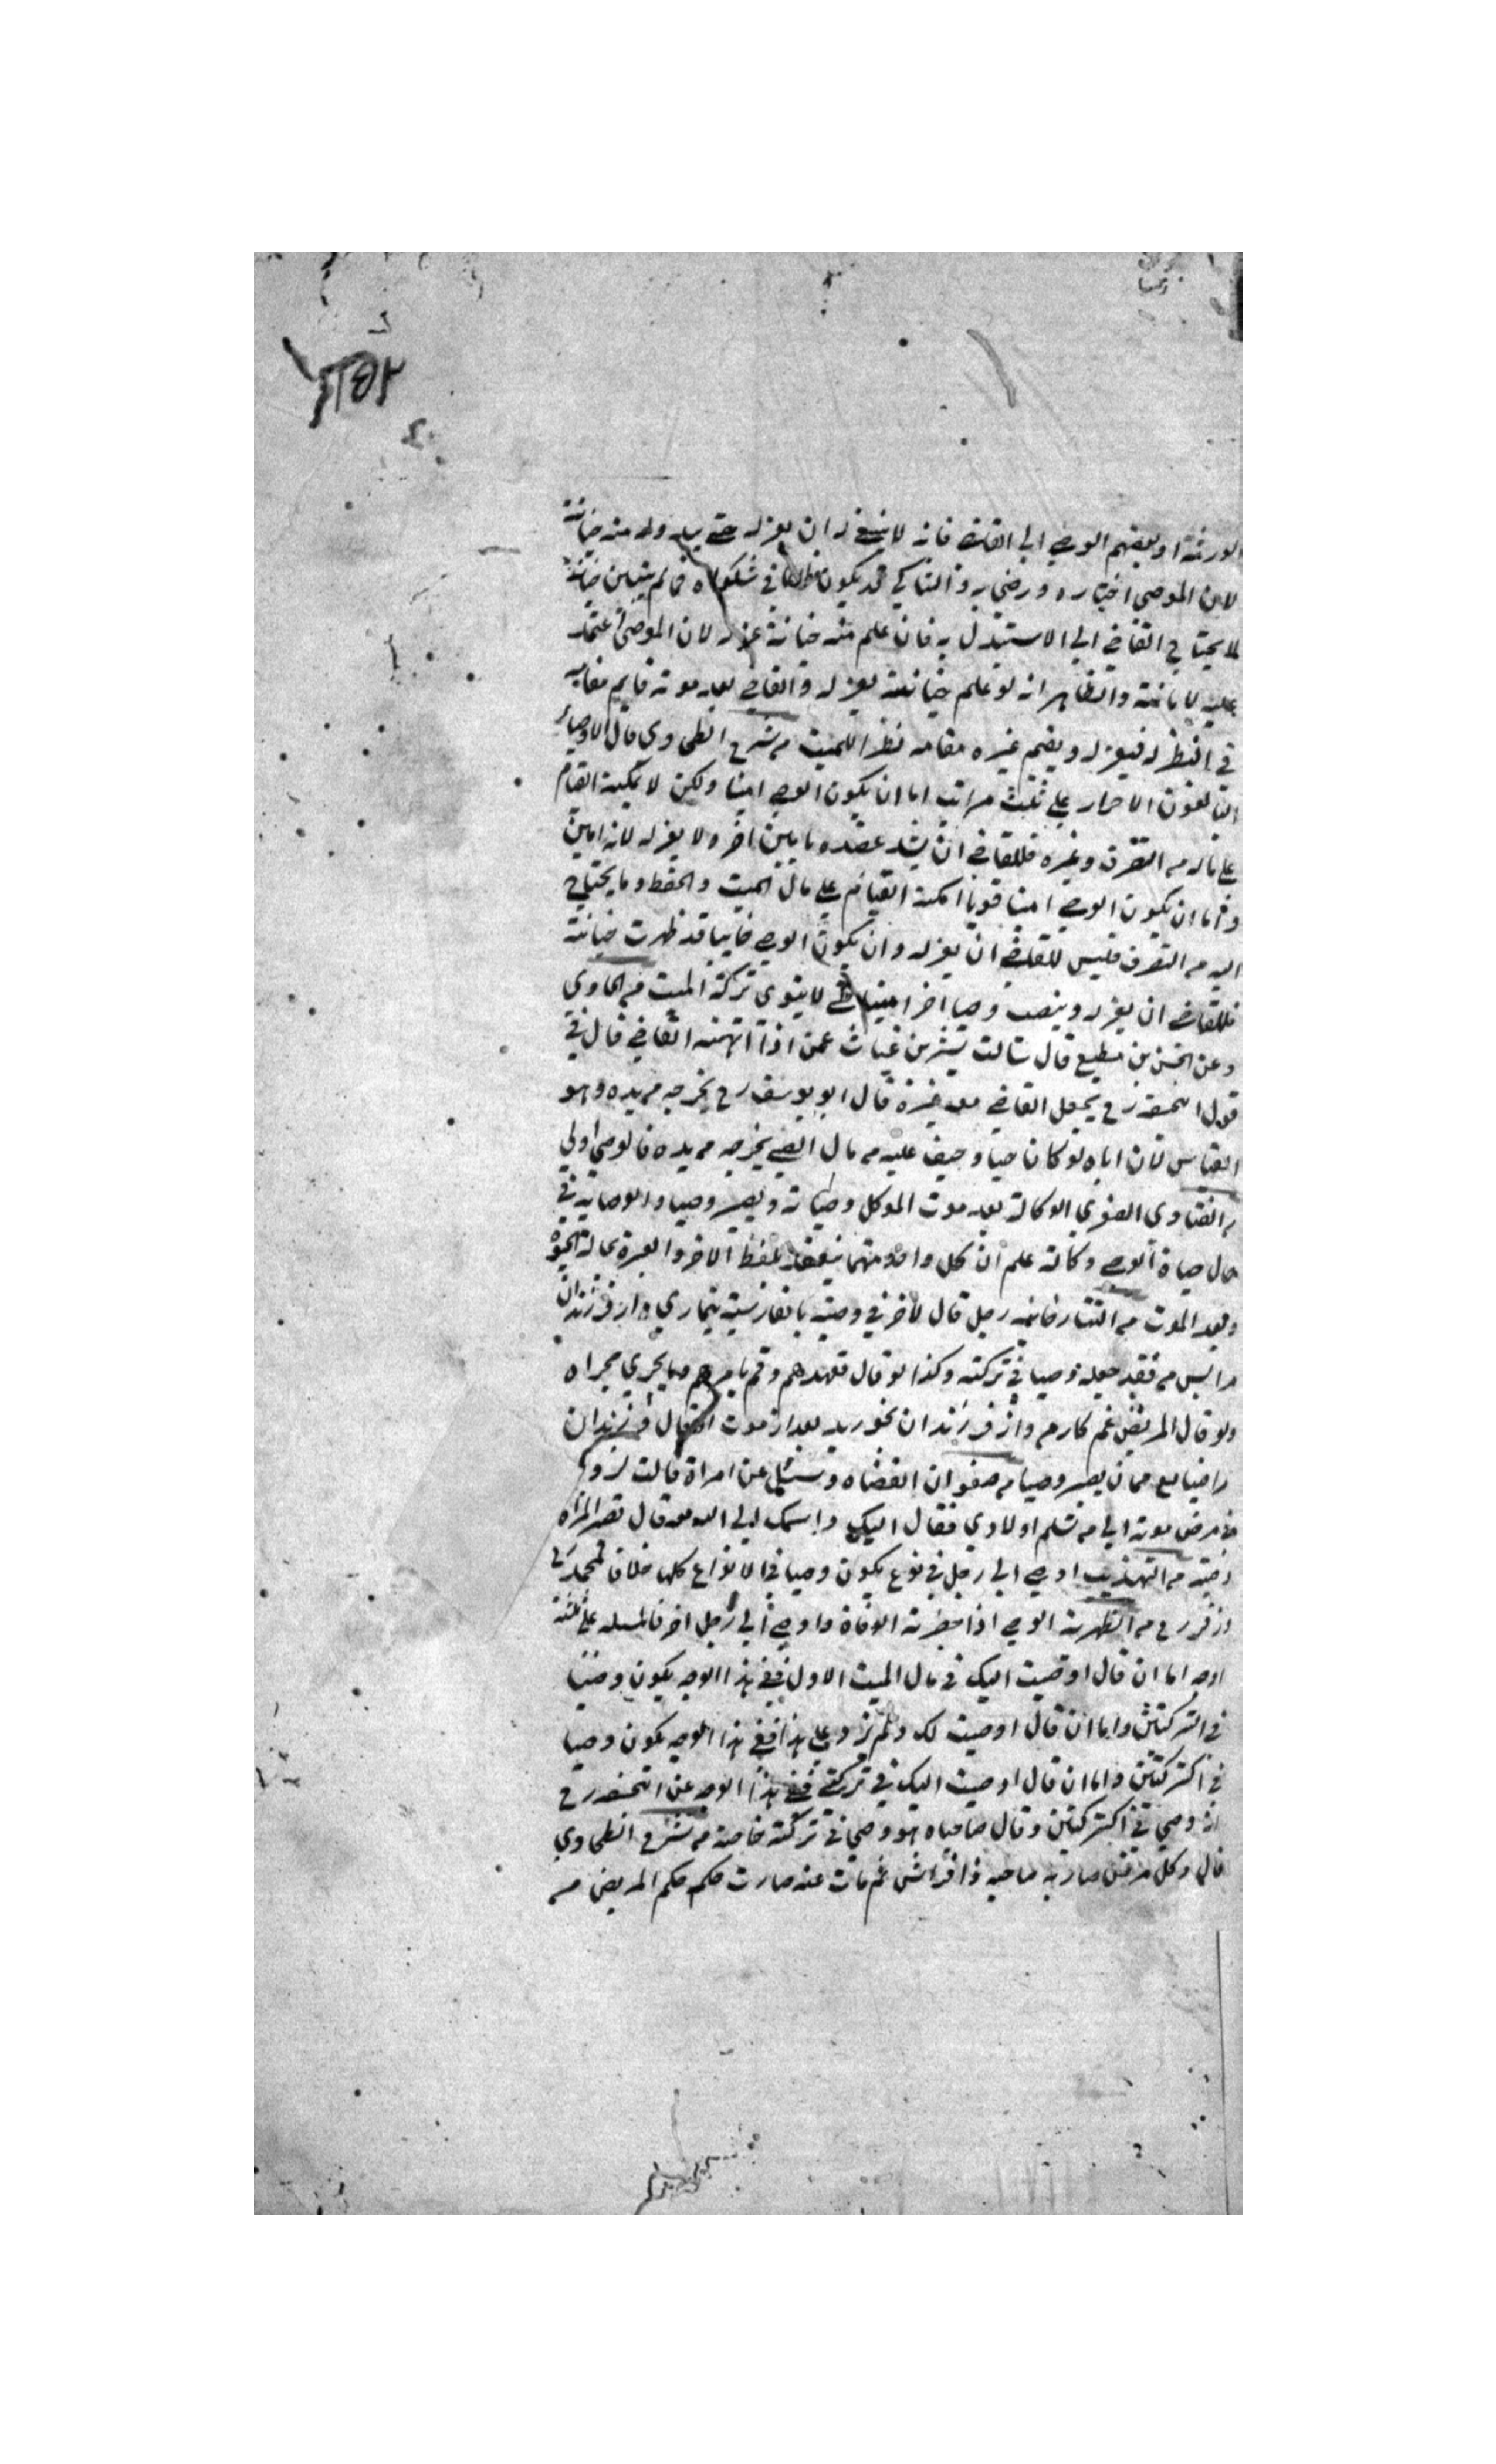 الورثة او بعضهم الوصي الى القاضي فانه لا ينبغي له ان يعزله حتى يبدو له منه خيانة
لان الموصي اختاره ورضي به والشاكي قد يكون ظالما في شكواه فما لم يتبين خيانته
لا يحتاج القاضي الى الاستبدال به فان علم منه خيانة عزله لان الموصي اعتمد
عليه لامانته والظاهر انه لو علم خيانته يعزله والقاضي بعد موته قايم مقامه
في النظر له فيعزله ويقيم غيره مقامه نظرا للميت من شرح الطحاوي قال الاوصياء
البالغون الاحرار على ثلث مراتب اما ان يكون الوصي امينا ولكن لا يمكنه القيام
على ماله من التصرف وغيره فللقاضي ان يشد عضده بامين اخر ولا يعزله لانه امين
واما ان يكون الوصي امينا قويا امكنه القيام على مال الميت والحفظ وما يحتاج
اليه من التصرف فليس للقاضي ان يعزله وان يكون الوصي خاينا قد ظهرت خيانته
فللقاضي ان يعزله وينصب وصيا اخر امينا حتى لا يتوى تركة الميت من الحاوي
وعن الحسن بن مطيع قال سالت بشر بن غياث عمن اذا اتهمه القاضي قال في
قول ابيحنيفة رح يجعل القاضي معه غيره قال ابو يوسف رح يخرجه من يده وهو
القياس لان اباه لو كان حيا وخيف عليه من مال الصبي يخرجه من يده فالوصي اولى
من الفتاوى الصغرى الوكالة بعد موت الموكل وصاية ويصير وصيا والوصاية في
حال حياة الوصي وكالة علم ان كل واحد منهما ينعقد بلفظ الاخر والعبرة بحالة الحيوة
وبعد الموت من التتارخانيه رجل قال لاخر في وصيته بالفارسية تيماري دار فرزندان
مرا پس من فقد جعله وصيا في تركته وكذا لو قال تعهدهم وقم بامرهم وما يجري مجراه
ولو قال المريض غم كار من وان فرزندان بخوريد بعد از موت فرزندان
را ضايع ممان يصير وصيا من صنوان القضاة وسئل عن امراة قالت لزوجها
في مرض موته الى من تسلم اولادي فقال اليك واسلمك الى الله قال تصير المراة
وصية من التهذيب اوصى الى رجل في نوع يكون وصيا في الانواع كلها خلافا لمحمد
وزفر رح من الظهيرية الوصي اذا حضرته الوفاة واوصى الى رجل اخر فالمسئلة على ثلثة
اوجه اما ان قال اوصيت اليك في مال الميت الاول ففي هذا الوجه يكون وصيا
في التركتين واما ان قال اوصيت لك ولم يزد على هذا ففي هذا الوجه يكون وصيا
في التركتين واما ان قال اوصيت اليك في تركتي ففي هذا الوجه عن ابيحنيفة رح
انه وصي في التركتين وقال صاحباه هو وصي في تركته خاصة من شرح الطحاوي
قال وكل مرض صار به صاحبه ذا فراش ثم مات عنه صارت حكمه حكم المريض من